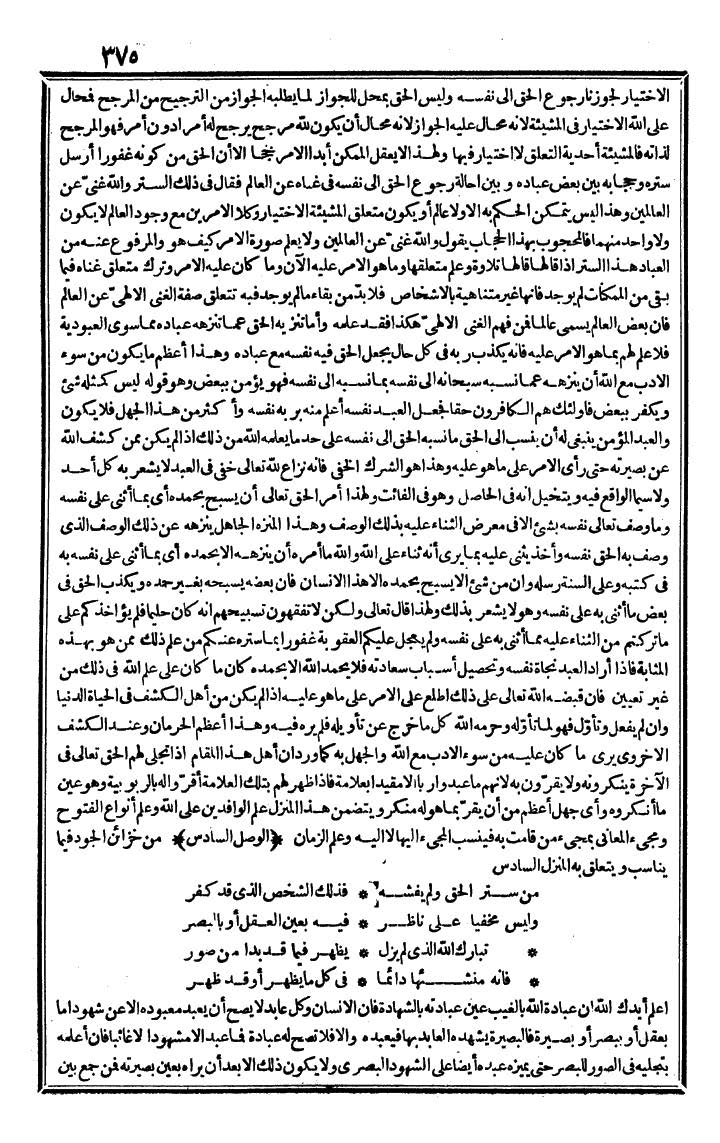 ٣٧٥
الاختيار لجوزنا رجوع الحق الى نفسه وليس الحق بمحل للجواز لما يطلبه الجواز من الترجيح من المرجح فمحال
على الله الاختيار فى المشيئة لانه محال عليه الجواز لانه محال أن يكون لله مرجح يرجح له أمرا دون أمر فهو المرجح
لذاته فالمشيئة أحدية التعلق لا اختيار فيها ولهذا لا يعقل الممكن أبدا الا مرجحا الا أن الحق من كونه غفورا أرسل
ستره وحجابه بين بعض عباده وبين احالة رجوع الحق الى نفسه فى غناه عن العالم فقال فى ذلك الستر والله غنىّ عن
العالمين وهذا ليس يتمكن الحكم به الا ولا عالم أو يكون متعلق المشيئة الاختيار وكلا الامرين مع وجود العالم لا يكون
ولا واحد منهما فالمحجوب بهذا الحجاب يقول والله غنىّ عن العالمين ولا يعلم صورة الامر كيف هو والمرفوع عنه من
العباد هذا الستر اذا قالها قالها تلاوة وعلم متعلقها وما هو الامر عليه الآن وما كان عليه الامر وترك متعلق غناه فيما
بقى من الممكنات لم يوجد فانها غير متناهية بالاشخاص فلا بدّ من بقاء مالم يوجد فيه تتعلق صفة الغنى الالهىّ عن العالم
فان بعض العالم يسمى عالما فمن فهم الغنى الالهىّ هكذا فقد علمه وأما تنزيه الحق عما تنزهه عباده مما سوى العبودية
فلا علم لهم بما هو الامر عليه فانه يكذب ربه فى كل حال يجعل الحق فيه نفسه مع عباده وهذا أعظم ما يكون من سوء
الادب مع الله أن ينزهه عما نسبه سبحانه الى نفسه بما نسبه الى نفسه فهو يؤمن ببعض وهو قوله ليس كمثله شئ
ويكفر ببعض فاولئك هم الكافرون حقا فجعل العبد نفسه أعلم منه بربه نفسه وأكثر من هذا الجهل فلا يكون
والعبد المؤمن ينبغى له أن ينسب الى الحق ما نسبه الحق الى نفسه على حد ما يعلمه الله من ذلك اذ الم يكن ممن كشف الله
عن بصيرته حتى رأى الامر على ما هو عليه وهذا هو الشرك الخفى فانه نزاع لله تعالى خفى فى العبد لا يشعر به كل أحد
ولا سيما الواقع فيه ويتخيل انه فى الحاصل وهو فى الفائت ولهذا أمر الحق تعالى أن يسبح بحمده أى بما أثنى على نفسه
وما وصف تعالى نفسه بشئ الا فى معرض الثناء عليه بذلك الوصف وهذا المنزه الجاهل ينزهه عن ذلك الوصف الذى
وصف به الحق نفسه وأخذ يثنى عليه بما يرى أنه ثناء على الله والله ما أمره أن ينزهه الا بحمده أى بما أثنى على نفسه به
فى كتبه وعلى السنة رسله وان من شئ الا يسبح بحمده الا هذا الانسان فان بعضه يسبحه بغير حمده ويكذب الحق فى
بعض ما أثنى به على نفسه وهو لا يشعر بذلك ولهذا قال تعالى ولكن لا تفقهون تسبيحهم انه كان حليما فلم يؤاخذكم على
ما تركتم من الثناء عليه مما أثنى به على نفسه ولم يعجل عليكم العقوبة غفورا بما ستره عنكم من علم ذلك ممن هو بهذه
المثابة فاذا أراد العبد نجاة نفسه وتحصيل أسباب سعادته فلا يحمد الله الا بحمده كان ما كان على علم الله فى ذلك من
غير تعيين فان قبضه الله تعالى على ذلك اطلع على الامر على ما هو عليه اذ الم يكن من أهل الكشف فى الحياة الدنيا
وان لم يفعل وتأوّل فهو لما تأوّله وحرمه الله كل ما خرج عن تأويله فلم يره فيه وهذا أعظم الحرمان وعند الكشف
الاخروى يرى ما كان عليه من سوء الادب مع الله والجهل به كما ورد ان أهل هذا المقام اذا تجلى لهم الحق تعالى فى
الآخرة ينكرونه ولا يقرّون به لانهم ما عبدوا ربا الا مقيدا بعلامة فاذا ظهر لهم بتلك العلامة أقرّوا له بالربوبية وهو عين
ما أنكروه وأى جهل أعظم من أن يقرّ بما هو له منكر ويتضمن هذا المنزل علم الوافدين على الله وعلم أنواع الفتوح
ومجىء المعانى بمجىء من قامت به فينسب المجىء اليها لا اليه وعلم الزمان ﴿الوصل السادس﴾ من خزائن الجود فيما
يناسب ويتعلق به المنزل السادس
من ستر الحق ولم يفشه * فذلك الشخص الذى قد كفر
وليس مخفيا على ناظر * فيه بعين العقل أو بالبصر
* تبارك الله الذى لم يزل * يظهر فيما قد بدا من صور
* فانه منشئها دائما * فى كل ما يظهر أو قد ظهر
اعلم أيدك الله ان عبادة الله بالغيب عين عبادته بالشهادة فان الانسان وكل عابد لا يصح أن يعبد معبوده الا عن شهود اما
بعقل أو ببصر أو بصيرة فالبصيرة يشهده العابد بها فيعبده والا فلا تصح له عبادة فما عبد الا مشهودا لا غائبا فان أعلمه
بتجليه فى الصور للبصر حتى يميزه عبده أيضا على الشهود البصرى ولا يكون ذلك الا بعد أن يراه بعين بصيرته فمن جمع بين